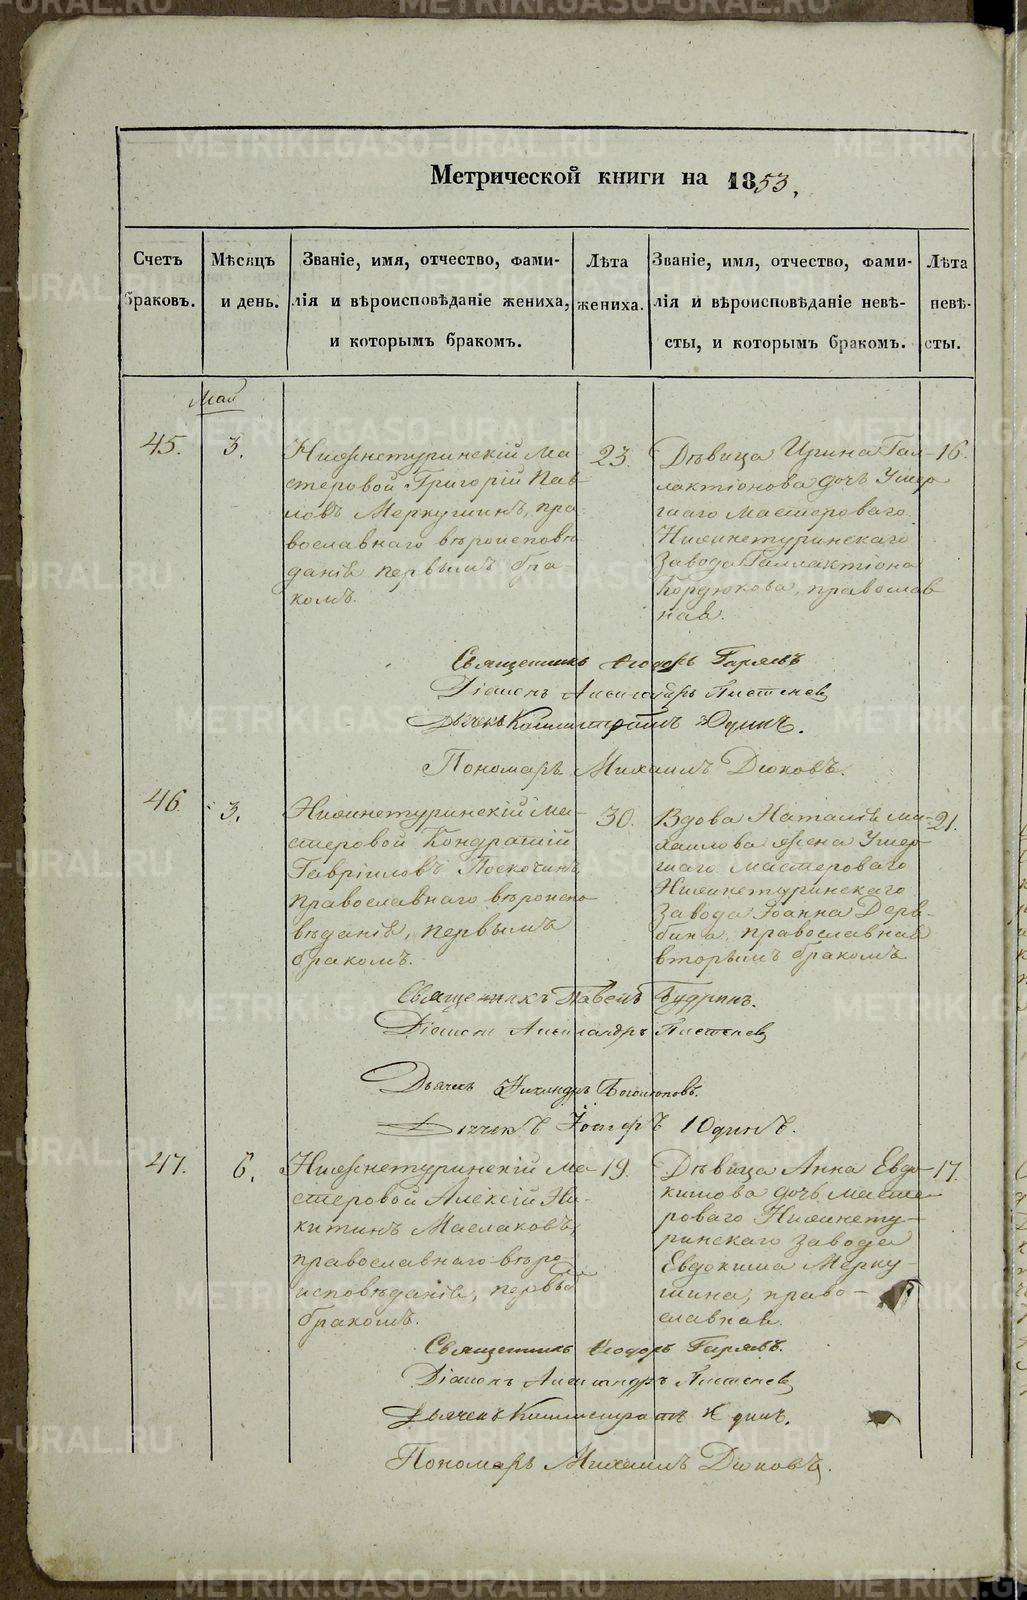 Метрической книги на 1853,
Счетъ браковъ.
Мѣсяцъ и день.
Званіе, имя, отчество, фами-
лія и вѣроисповѣданіе жениха,
и которымъ бракомъ.
Лѣта жениха.
Званіе, имя, отчество, фами-
лія и вѣроисповѣданіе невѣ-
сты, и которымъ бракомъ.
Лѣта невѣ-
сты.
Май
45.
3.
Нижнетуринскій Ма-
стеровой Григорій Пав-
ловъ Меркушинъ, пра-
вославнаго вѣроисповѣ
данія первымъ бра-
комъ.
23.
Дѣвица Ирина Гал-
лактіонова дочь Умер
шаго мастероваго
Нижнетуринскаго
Завода Галлактіона
Кордюкова, православ
ная.
16.
Священникъ Ѳеодоръ Гаряевъ
Діаконъ Александръ
Дьячекъ Юдинъ.
Пономарь Михаилъ Дюковъ.
46.
3.
Нижнетуринскій Ма-
стеровой Кондратій
Гавріиловъ Поскочинъ,
православнаго вѣроиспо-
вѣданія, первымъ
бракомъ.
30.
Вдова Наталія Ми-
хаилова жена Умер-
шаго мастероваго
Нижнетуринскаго
Завода Іоанна Деря-
бина, православная
вторымъ бракомъ
21.
Священникъ Павелъ Будринъ.
Діаконъ Александръ
Дьячекъ
Дьячекъ Іосифъ Юдинъ.
47.
6.
Нижнетуринскій Ма-
стеровой Алексій Ни-
китинъ Маслаковъ,
православнаго вѣро-
исповѣданія, первый
бракомъ.
19.
Дѣвица Анна Евдо-
кимова дочь масте-
роваго Нижнету-
ринскаго завода
Евдокима Мерку-
шина, право-
славная.
17.
Священникъ Ѳеодоръ Гаряевъ.
Діаконъ Александръ
Дьячекъ Юдинъ.
Пономарь Михаилъ Дюковъ.
METRIKI.GASO-URAL.RU